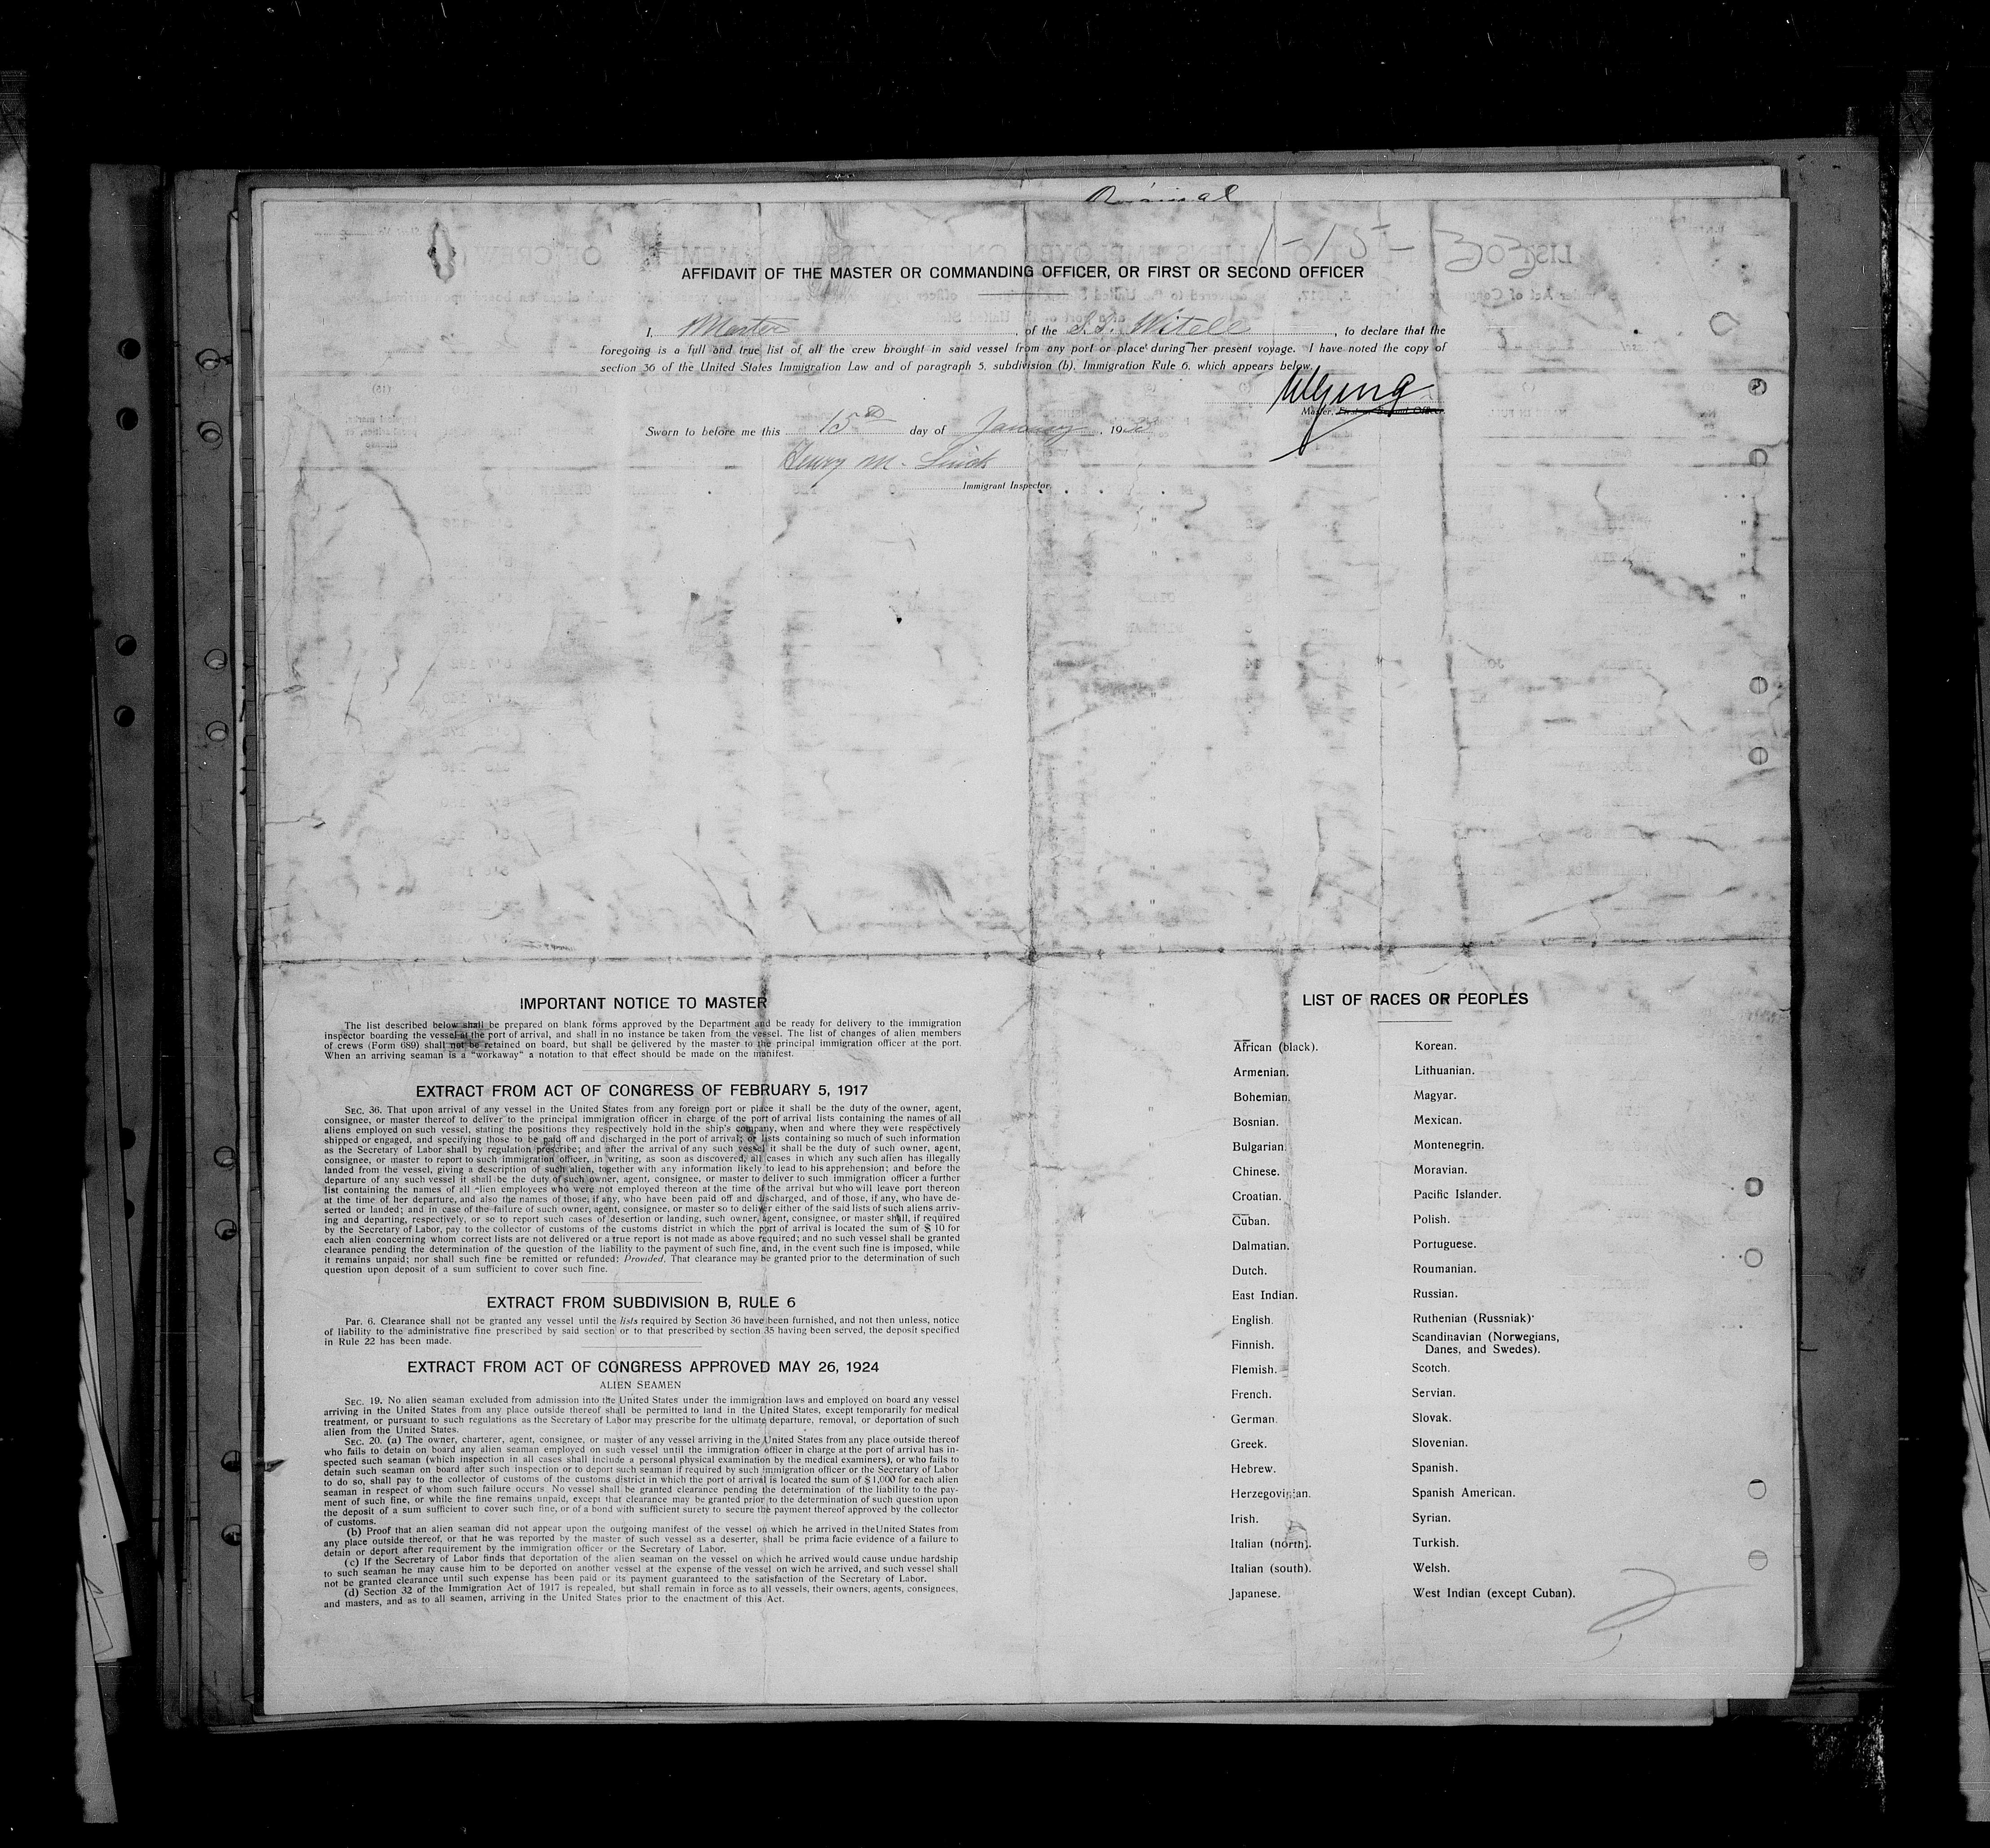 Original
1-15-33
AFFIDAVIT OF THE MASTER OR COMMANDING OFFICER, OR FIRST OR SECOND OFFICER
I, Master, of the S.S. Witell, to declare that the
foregoing is a full and true list of all the crew brought in said vessel from any port or place during her present voyage. I have noted the copy of
section 36 of the United States Immigration Law and of paragraph 5, subdivision (b), Immigration Rule 6, which appears below.
Master, First or Second Officer.
Sworn to before me this 15th day of January, 1933
Henry M.
Immigrant Inspector.
IMPORTANT NOTICE TO MASTER
The list described below shall be prepared on blank forms approved by the Department and be ready for delivery to the immigration
inspector boarding the vessel at the port of arrival, and shall in no instance be taken from the vessel. The list of changes of alien members
of crews (Form 689) shall not be retained on board, but shall be delivered by the master to the principal immigration officer at the port.
When an arriving seaman is a "workaway" a notation to that effect should be made on the manifest.
EXTRACT FROM ACT OF CONGRESS OF FEBRUARY 5, 1917
SEC. 36. That upon arrival of any vessel in the United States from any foreign port or place it shall be the duty of the owner, agent,
consignee, or master thereof to deliver to the principal immigration officer in charge of the port of arrival lists containing the names of all
aliens employed on such vessel, stating the positions they respectively hold in the ship's company, when and where they were respectively
shipped or engaged, and specifying those to be paid off and discharged in the port of arrival; or lists containing so much of such information
as the Secretary of Labor shall by regulation prescribe; and after the arrival of any such vessel it shall be the duty of such owner, agent,
consignee, or master to report to such immigration officer, in writing, as soon as discovered, all cases in which any such alien has illegally
landed from the vessel, giving a description of such alien, together with any information likely to lead to his apprehension; and before the
departure of any such vessel it shall be the duty of such owner, agent, consignee, or master to deliver to such immigration officer a further
list containing the names of all "lien employees who were not employed thereon at the time of the arrival but who will leave port thereon
at the time of her departure, and also the names of those, if any, who have been paid off and discharged, and of those, if any, who have de-
serted or landed; and in case of the failure of such owner, agent, consignee, or master so to deliver either of the said lists of such aliens arriv-
ing and departing, respectively, or so to report such cases of desertion or landing, such owner, agent, consignee, or master shall, if required
by the Secretary of Labor, pay to the collector of customs of the customs district in which the port of arrival is located the sum of $ 10 for
each alien concerning whom correct lists are not delivered or a true report is not made as above required; and no such vessel shall be granted
clearance pending the determination of the question of the liability to the payment of such fine, and, in the event such fine is imposed, while
it remains unpaid; nor shall such fine be remitted or refunded; Provided, That clearance may be granted prior to the determination of such
question upon deposit of a sum sufficient to cover such fine.
EXTRACT FROM SUBDIVISION B, RULE 6
Par. 6. Clearance shall not be granted any vessel until the lists required by Section 36 have been furnished, and not then unless, notice
of liability to the administrative fine prescribed by said section or to that prescribed by section 35 having been served, the deposit specified
in Rule 22 has been made.
EXTRACT FROM ACT OF CONGRESS APPROVED MAY 26, 1924
ALIEN SEAMEN
SEC. 19. No alien seaman excluded from admission into the United States under the immigration laws and employed on board any vessel
arriving in the United States from any place outside thereof shall be permitted to land in the United States, except temporarily for medical
treatment, or pursuant to such regulations as the Secretary of Labor may prescribe for the ultimate departure, removal, or deportation of such
alien from the United States.
SEC. 20. (a) The owner, charterer, agent, consignee, or master of any vessel arriving in the United States from any place outside thereof
who fails to detain on board any alien seaman employed on such vessel until the immigration officer in charge at the port of arrival has in-
spected such seaman (which inspection in all cases shall include a personal physical examination by the medical examiners), or who fails to
detain such seaman on board after such inspection or to deport such seaman if required by such immigration officer or the Secretary of Labor
to do so, shall pay to the collector of customs of the customs district in which the port of arrival is located the sum of $ 1,000 for each alien
seaman in respect of whom such failure occurs. No vessel shall be granted clearance pending the determination of the liability to the pay-
ment of such fine, or while the fine remains unpaid, except that clearance may be granted prior to the determination of such question upon
the deposit of a sum sufficient to cover such fine, or of a bond with sufficient surety to secure the payment thereof approved by the collector
of customs.
(b) Proof that an alien seaman did not appear upon the outgoing manifest of the vessel on which he arrived in the United States from
any place outside thereof, or that he was reported by the master of such vessel as a deserter, shall be prima facie evidence of a failure to
detain or deport after requirement by the immigration officer or the Secretary of Labor.
(c) If the Secretary of Labor finds that deportation of the alien seaman on the vessel on which he arrived would cause undue hardship
to such seaman he may cause him to be deported on another vessel at the expense of the vessel on wich he arrived, and such vessel shall
not be granted clearance until such expense has been paid or its payment guaranteed to the satisfaction of the Secretary of Labor.
(d) Section 32 of the Immigration Act of 1917 is repealed, but shall remain in force as to all vessels, their owners, agents, consignees,
and masters, and as to all seamen, arriving in the United States prior to the enactment of this Act.
LIST OF RACES OR PEOPLES
African (black).
Armenian.
Bohemian.
Bosnian.
Bulgarian.
Chinese.
Croatian.
Cuban.
Dalmatian.
Dutch.
East Indian.
English.
Finnish.
Flemish.
French.
German.
Greek.
Hebrew.
Herzegovinian.
Irish.
Italian (north).
Italian (south).
Japanese.
Korean.
Lithuanian.
Magyar.
Mexican.
Montenegrin.
Moravian.
Pacific Islander.
Polish.
Portuguese.
Roumanian.
Russian.
Ruthenian (Russniak)
Scandinavian (Norwegians,
Danes, and Swedes).
Scotch.
Servian.
Slovak.
Slovenian.
Spanish.
Spanish American.
Syrian.
Turkish.
Welsh.
West Indian (except Cuban).